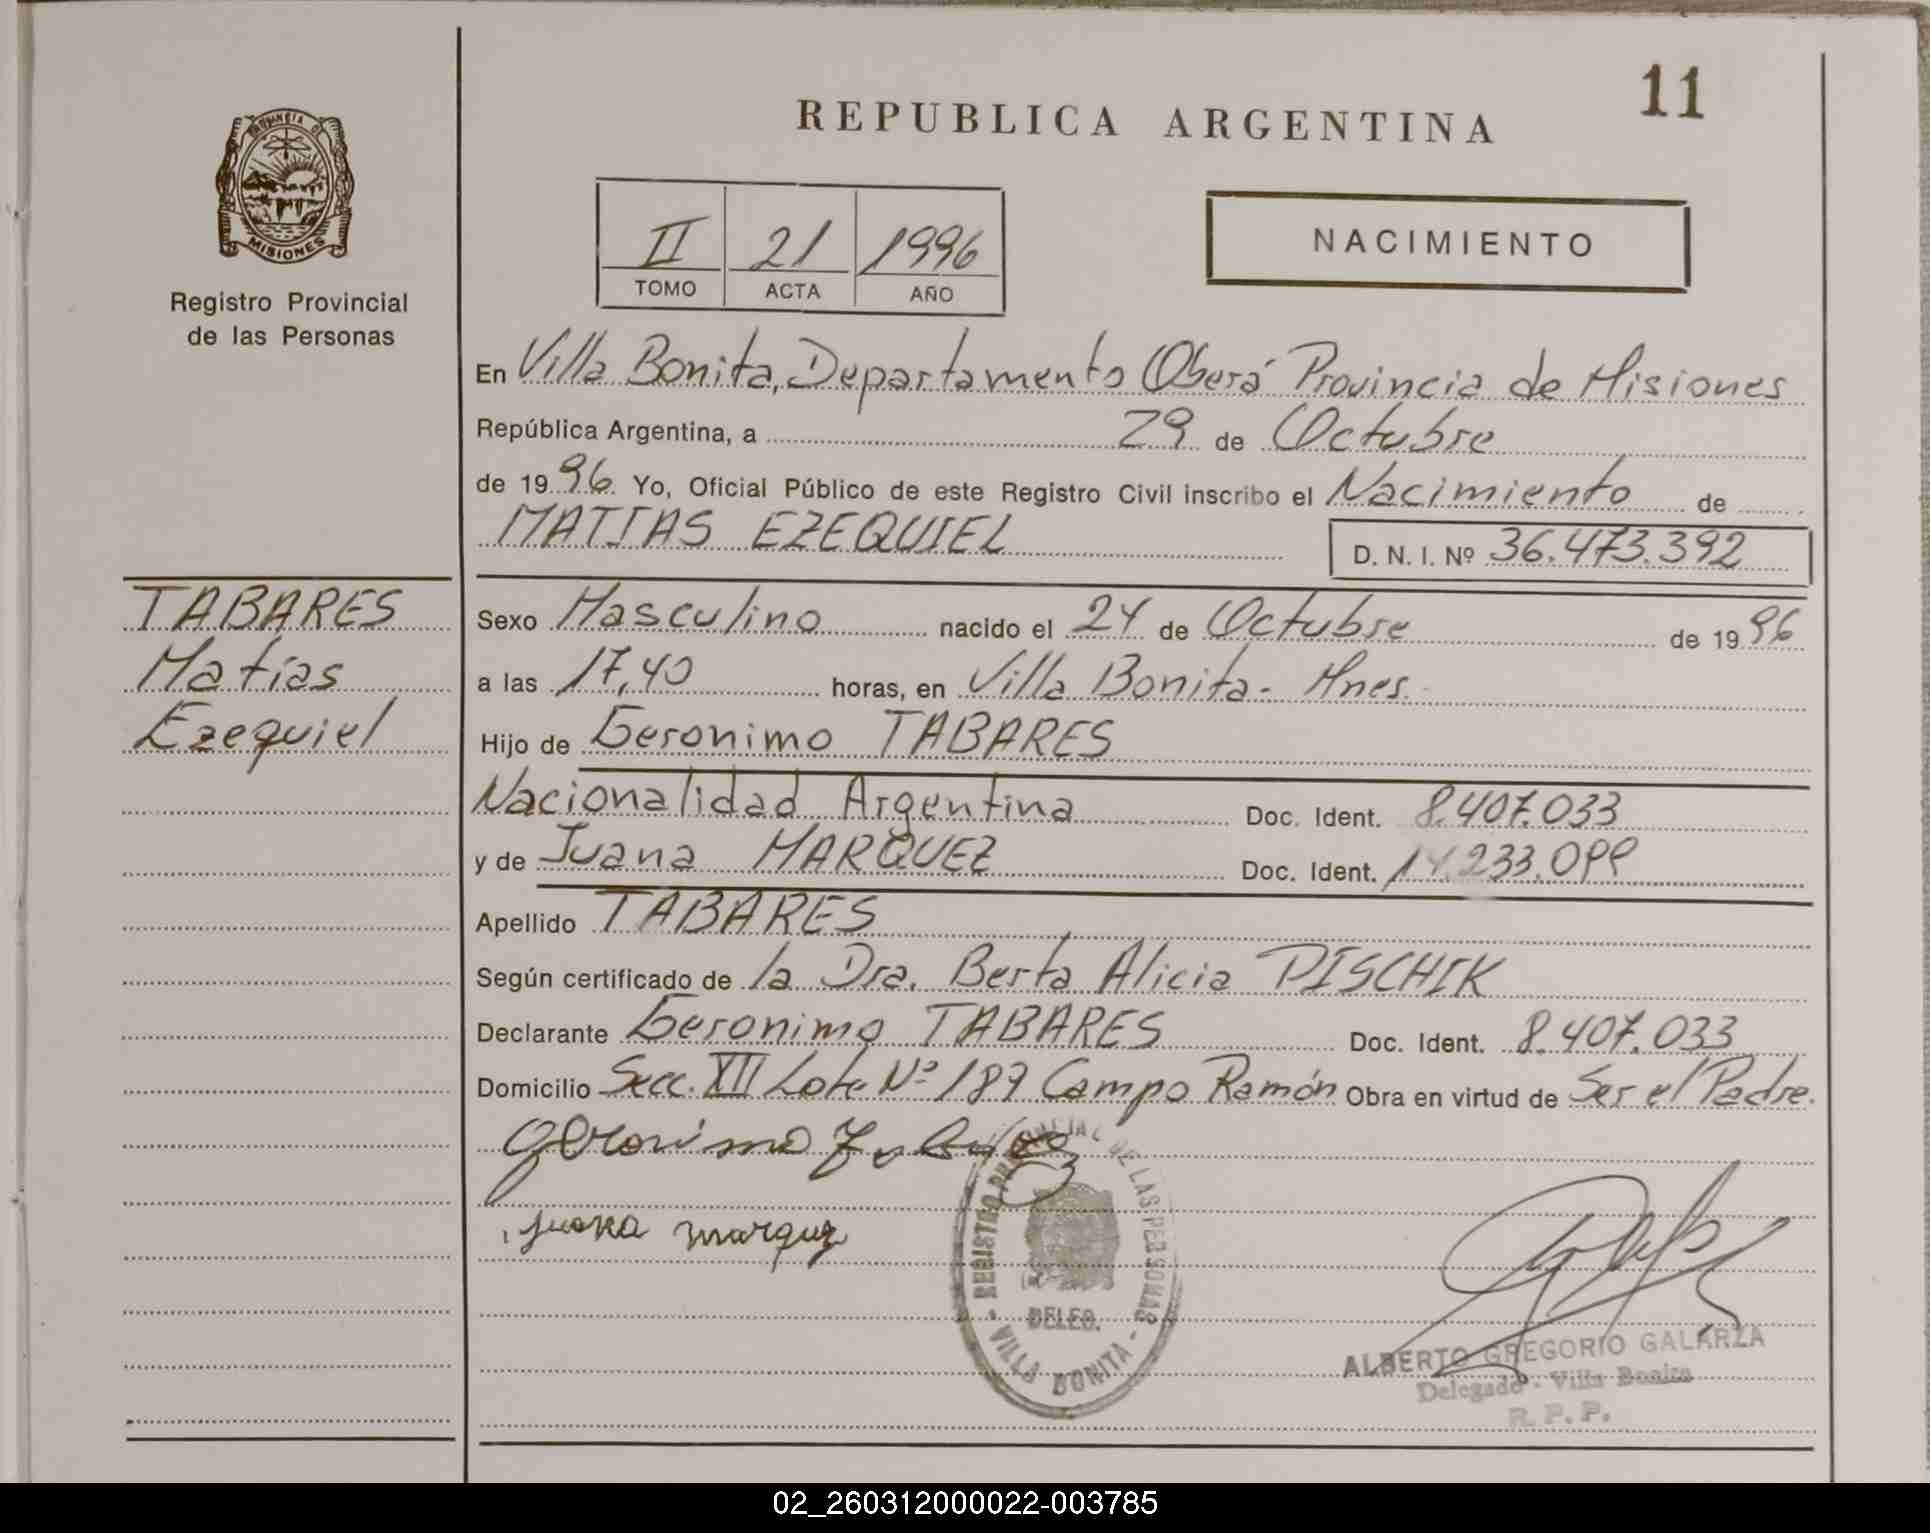 11
REPUBLICA ARGENTINA
PROVINCIA D
MISIONES
Registro Provincial
de las Personas
II 21 1996
TOMO ACTA AÑO
NACIMIENTO
En Villa Bonita, Departamento Oberá Provincia de Misiones
República Argentina, a 29 de Octubre
de 1996 Yo, Oficial Público de este Registro Civil inscribo el Nacimiento de
MATIAS EZEQUIEL D. N. I. Nº 36.473.392
TABARES
Matías
Ezequiel
Sexo Masculino nacido el 24 de Octubre de 1996
a las 17,40 horas, en Villa Bonita - Mnes.
Hijo de Geronimo TABARES
Nacionalidad Argentina Doc. Ident. 8.407.033
y de Juana MARQUEZ Doc. Ident. 14.233.099
Apellido TABARES
Según certificado de la Dra. Berta Alicia PISCHIK
Declarante Geronimo TABARES Doc. Ident. 8.407.033
Domicilio Secc. XII Lote Nº 187 Campo Ramón Obra en virtud de Ser el Padre.
Geronimo
Juana marquez
REGISTRO PROVINCIAL DE LAS PERSONAS
DELEG.
- VILLA BONITA -
ALBERTO GREGORIO GALARZA
Delegado - Villa Bonita
R. P. P.
02_260312000022-003785